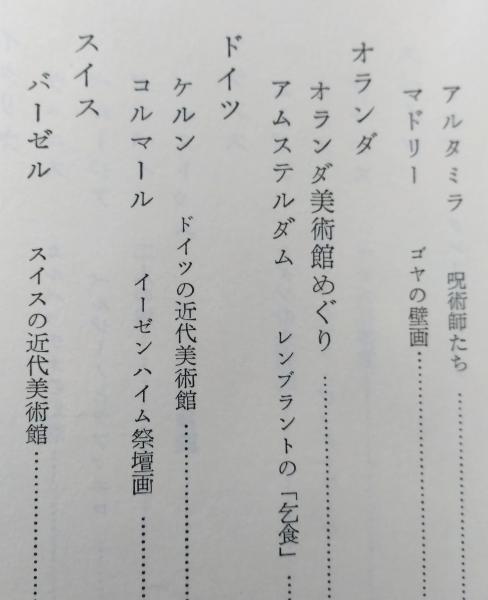 アルタミラ 呪術師たち…………
マドリー ゴヤの壁画…………
オランダ
オランダ美術館めぐり…………
アムステルダム レンブラントの「乞食」…
ドイツ
ケルン ドイツの近代美術館…………
コルマール イーゼンハイム祭壇画…………
スイス
バーゼル スイスの近代美術館…………